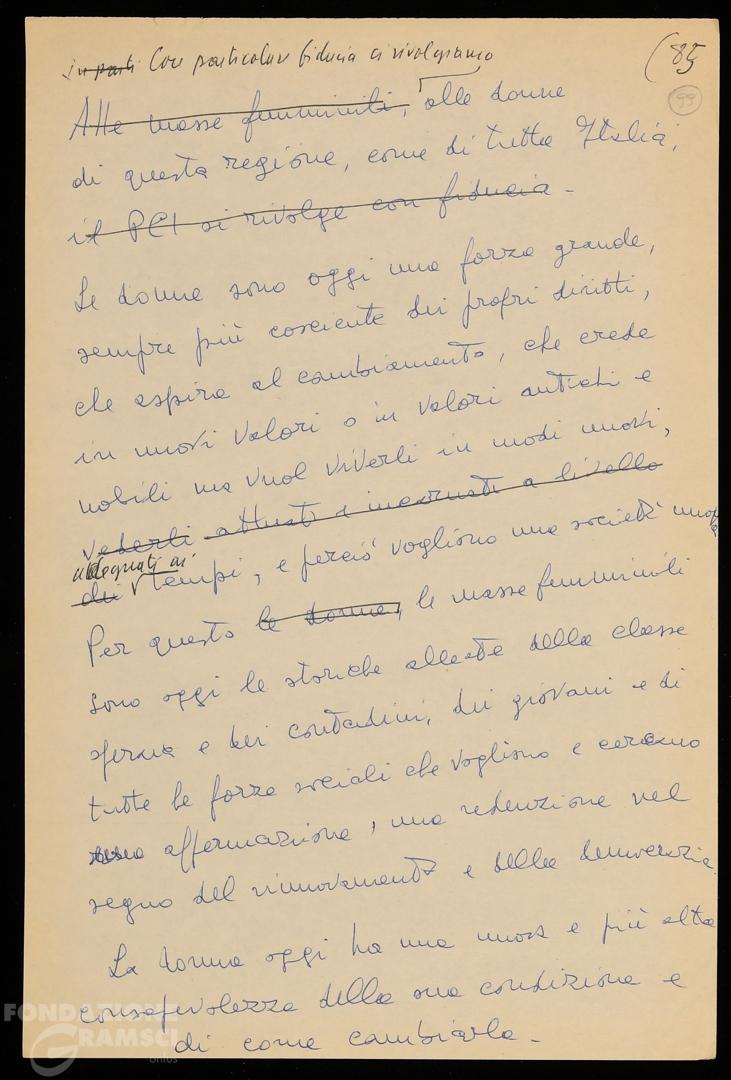 in parti Con particolare fiducia ci rivolgiamo
(85
99
Alle masse femminili, alle donne
di questa regione, come di tutta Italia,
il PCI si rivolge con fiducia -
Le donne sono oggi una forza grande,
sempre più cosciente dei propri diritti,
che aspira al cambiamento, che crede
in nuovi valori o in valori antichi e
nobili ma vuol viverli in modi nuovi,
vederli attuati e incarnati a livello
adeguati ai
dei tempi, e perciò vogliono una società nuova
Per questo le donne, le masse femminili
sono oggi le storiche alleate della classe
operaia e dei contadini, dei giovani e di
tutte le forze sociali che vogliono e cercano
una affermazione, una redenzione nel
segno del rinnovamento e della democrazia.
La donna oggi ha una nuova e più alta
consapevolezza della sua condizione e
di come cambiarla -
FONDAZIONE
GRAMSCI
onlus